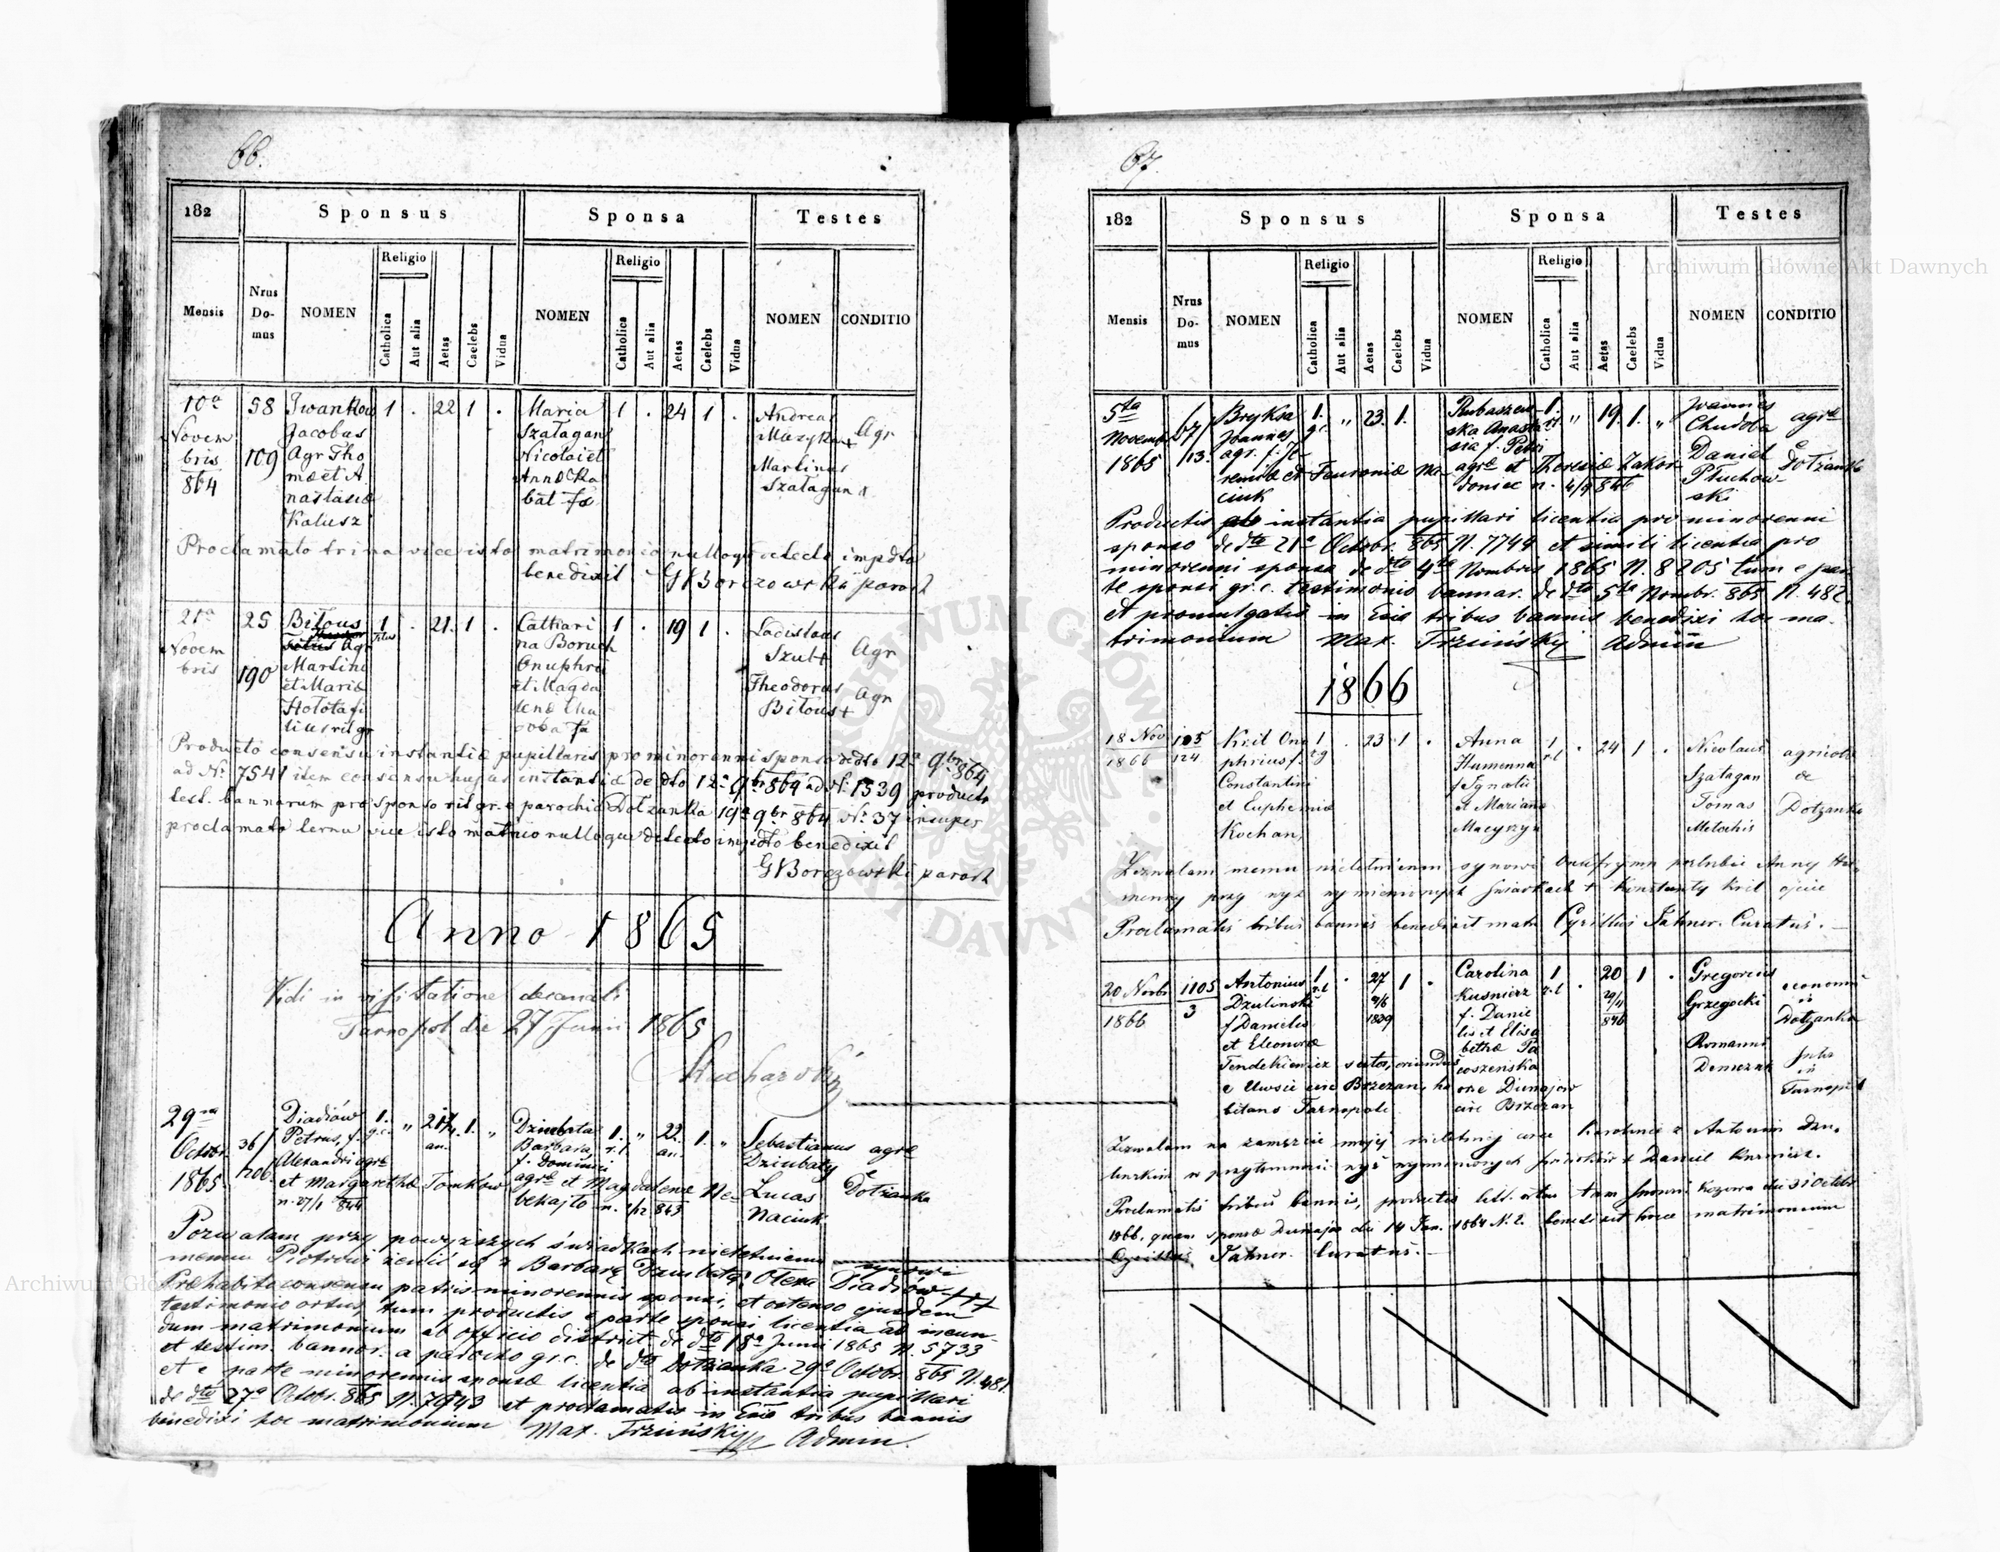 66.
182
Sponsus
Sponsa
Testes
Mensis
Nrus Domus
NOMEN
Religio
Catholica
Aut alia
Aetas
Caelebs
Vidua
NOMEN
Religio
Catholica
Aut alia
Aetas
Caelebs
Vidua
NOMEN
CONDITIO
10a Novembris 864
58
109
Iwankow
Jacobus
Agr Tho
mae et A
nastasiae
Kalusz
1 . 22 1 .
Maria
Szatagan
Nicolai et
Annae Ka
bat fa
1 . 24 1 .
Andreas
Muzyka +
Martinus
Szatagan +
Agr
Proclamato trina vice isto matrimonio nulloque detecto impdto
benedixit GBorczowski paroch
21a Novembris
25
190
Bitous
Agr
Martini
et Mariae
Hotota fi
lius rit gr
1 . 21 1 .
Cathari
na Boruch
Onuphri
et Magda
lenae Chu
doba fa
1 . 19 1 .
Ladislaus
Szul +
Theodorus
Bitous +
Agr
Agr
Producto consensu instantiae pupillaris pro minorenni sponso ddto 12a 9bris 864
ad Nr 7541 item consensu hujus instantiae de dto 12a 9br 864 ad Nr 1539 producto
test. bannorum pro sponso rit gr. e parochia Dotzanka 19a 9br 864 Nr 37 insuper
proclamato terna vice isto matrimonio nulloque detecto impdto benedixit
GBorczowski paroch
Anno 1865
Vidi in visitatione decanali
Tarnopol die 27 Junii 1865
29na
Octobr.
1865.
36/
Diadiów
Petrus, f.
Alexandri agrae
et Margarethae Tomków
n. 27/1 844
1. g.c. " 21 1. "
Dziubata
Barbara
f. Dominici
agrae et Magdalenae
n. 843
1. r.l. " 22 an. 1. "
Sebastianus
Dziubaty
Lucas
Naciuk
agrae
e
Dotzanka
Pozwalam przy powyższych świadkach nieletniemu synowi
memu Piotrowi żenić się z Barbarą Dziubatą Olexa Diadiów +++
Praehabito consensu patris minorennis sponsi, et ostenso ejusdem
testimonio ortus, tum productis e parte sponsi licentia ad ineun-
dum matrimonium ab officio district de dto 18a Junii 1865 N. 5733
et testim. bannor. a parocho gr.c. de dto Dotzanka 29a Octobr. 865 N. 481.
et e parte minorennis sponsae licentia ab instantia pupillari
de dto 27a Octobr. 865 N. 7943 et proclamatis in Eccla tribus bannis
benedixi hoc matrimonium Max. Trzciński Admin.
67.
182
Sponsus
Sponsa
Testes
Mensis
Nrus Domus
NOMEN
Religio
Catholica
Aut alia
Aetas
Caelebs
Vidua
NOMEN
Religio
Catholica
Aut alia
Aetas
Caelebs
Vidua
NOMEN
CONDITIO
5ta
Novemb
1865
67/
/13.
Bryksa
Joannes
agr. f. Je-
remiae et Fevroniae Na
ciuk
1. g.c. " 23. 1.
Rubaszew-
ska Anasta
sia f. Petri
agrae et Theresiae Zakor
doniec n. 4/9 846
1. " 19. 1. "
Joannes
Chudoba
Daniel
Ptuchow-
ski
agrae
e
Dotzanka
Productis instantia pupillari licentia pro minorenni
sponso de dto 21a Octobr. 865 N. 7749 et simili licentia pro
minorenni sponsa de dto 4ta Nombris 1865 N. 8205 tum e par
te sponsi gr.c. testimonio bannor. de dto 5ta Nombr. 865 N. 482.
et promulgatis in Eccla tribus bannis benedixi hoc ma-
trimonium Max. Trzciński Admin
1866
18 Nov
1866
105
124
Kril Onu
phrius f.
Constantini
et Euphemiae
Kochan
1 r.g . 23 1 .
Anna
Humenna
f Ignatii
et Marianae
Macyszyn
1 r.l . 24 1 .
Nicolaus
Szatagan
Tomas
Metochis
agricolae
de
Dotzanka
Zezwalam memu nieletniemu synowi Onufrymu poślubić Anny Hu-
menny przy wyż wymienionych świadkach + Konstanty Kril ojciec
Proclamatis tribus bannis benedixit matr. Cyrillus Jahner. Curatus.
20 Novbr
1866
1105
3
Antonius
Dzulinski
f Danielis
et Eleonorae
Tendekiewicz sutor, oriundus
e Uwsie circ Brzezan, ha
bitans Tarnopoli
1 r.l . 27 1 .
1839
Carolina
Kusnierz
f. Danie
lis et Elisa
bethae
orae Dunajow
circ Brzezan
1 r.l . 20 1 .
29/11
846
Gregorius
Grzegocki
Romanus
Demczuk
economus
in
Dotzanka
in
Tarnopol
Zezwalam na zamęźcie mojéj nieletniéj córce Karolince z Antonim Dzu-
linskim w przytomności wyż wymienionych świadków + Daniel Kusnierz.
Proclamatis tribus bannis, productis test. ortus tam sponsi Kozowa die 31 Octobr
1866, quam sponsae Dunajow die 14 Jan. 1864 N. 2. benedixit hocce matrimonium
Cyrillus Jahner. Curatus.
Archiwum Główne Akt Dawnych
ARCHIWUM GŁÓWNE AKT DAWNYCH